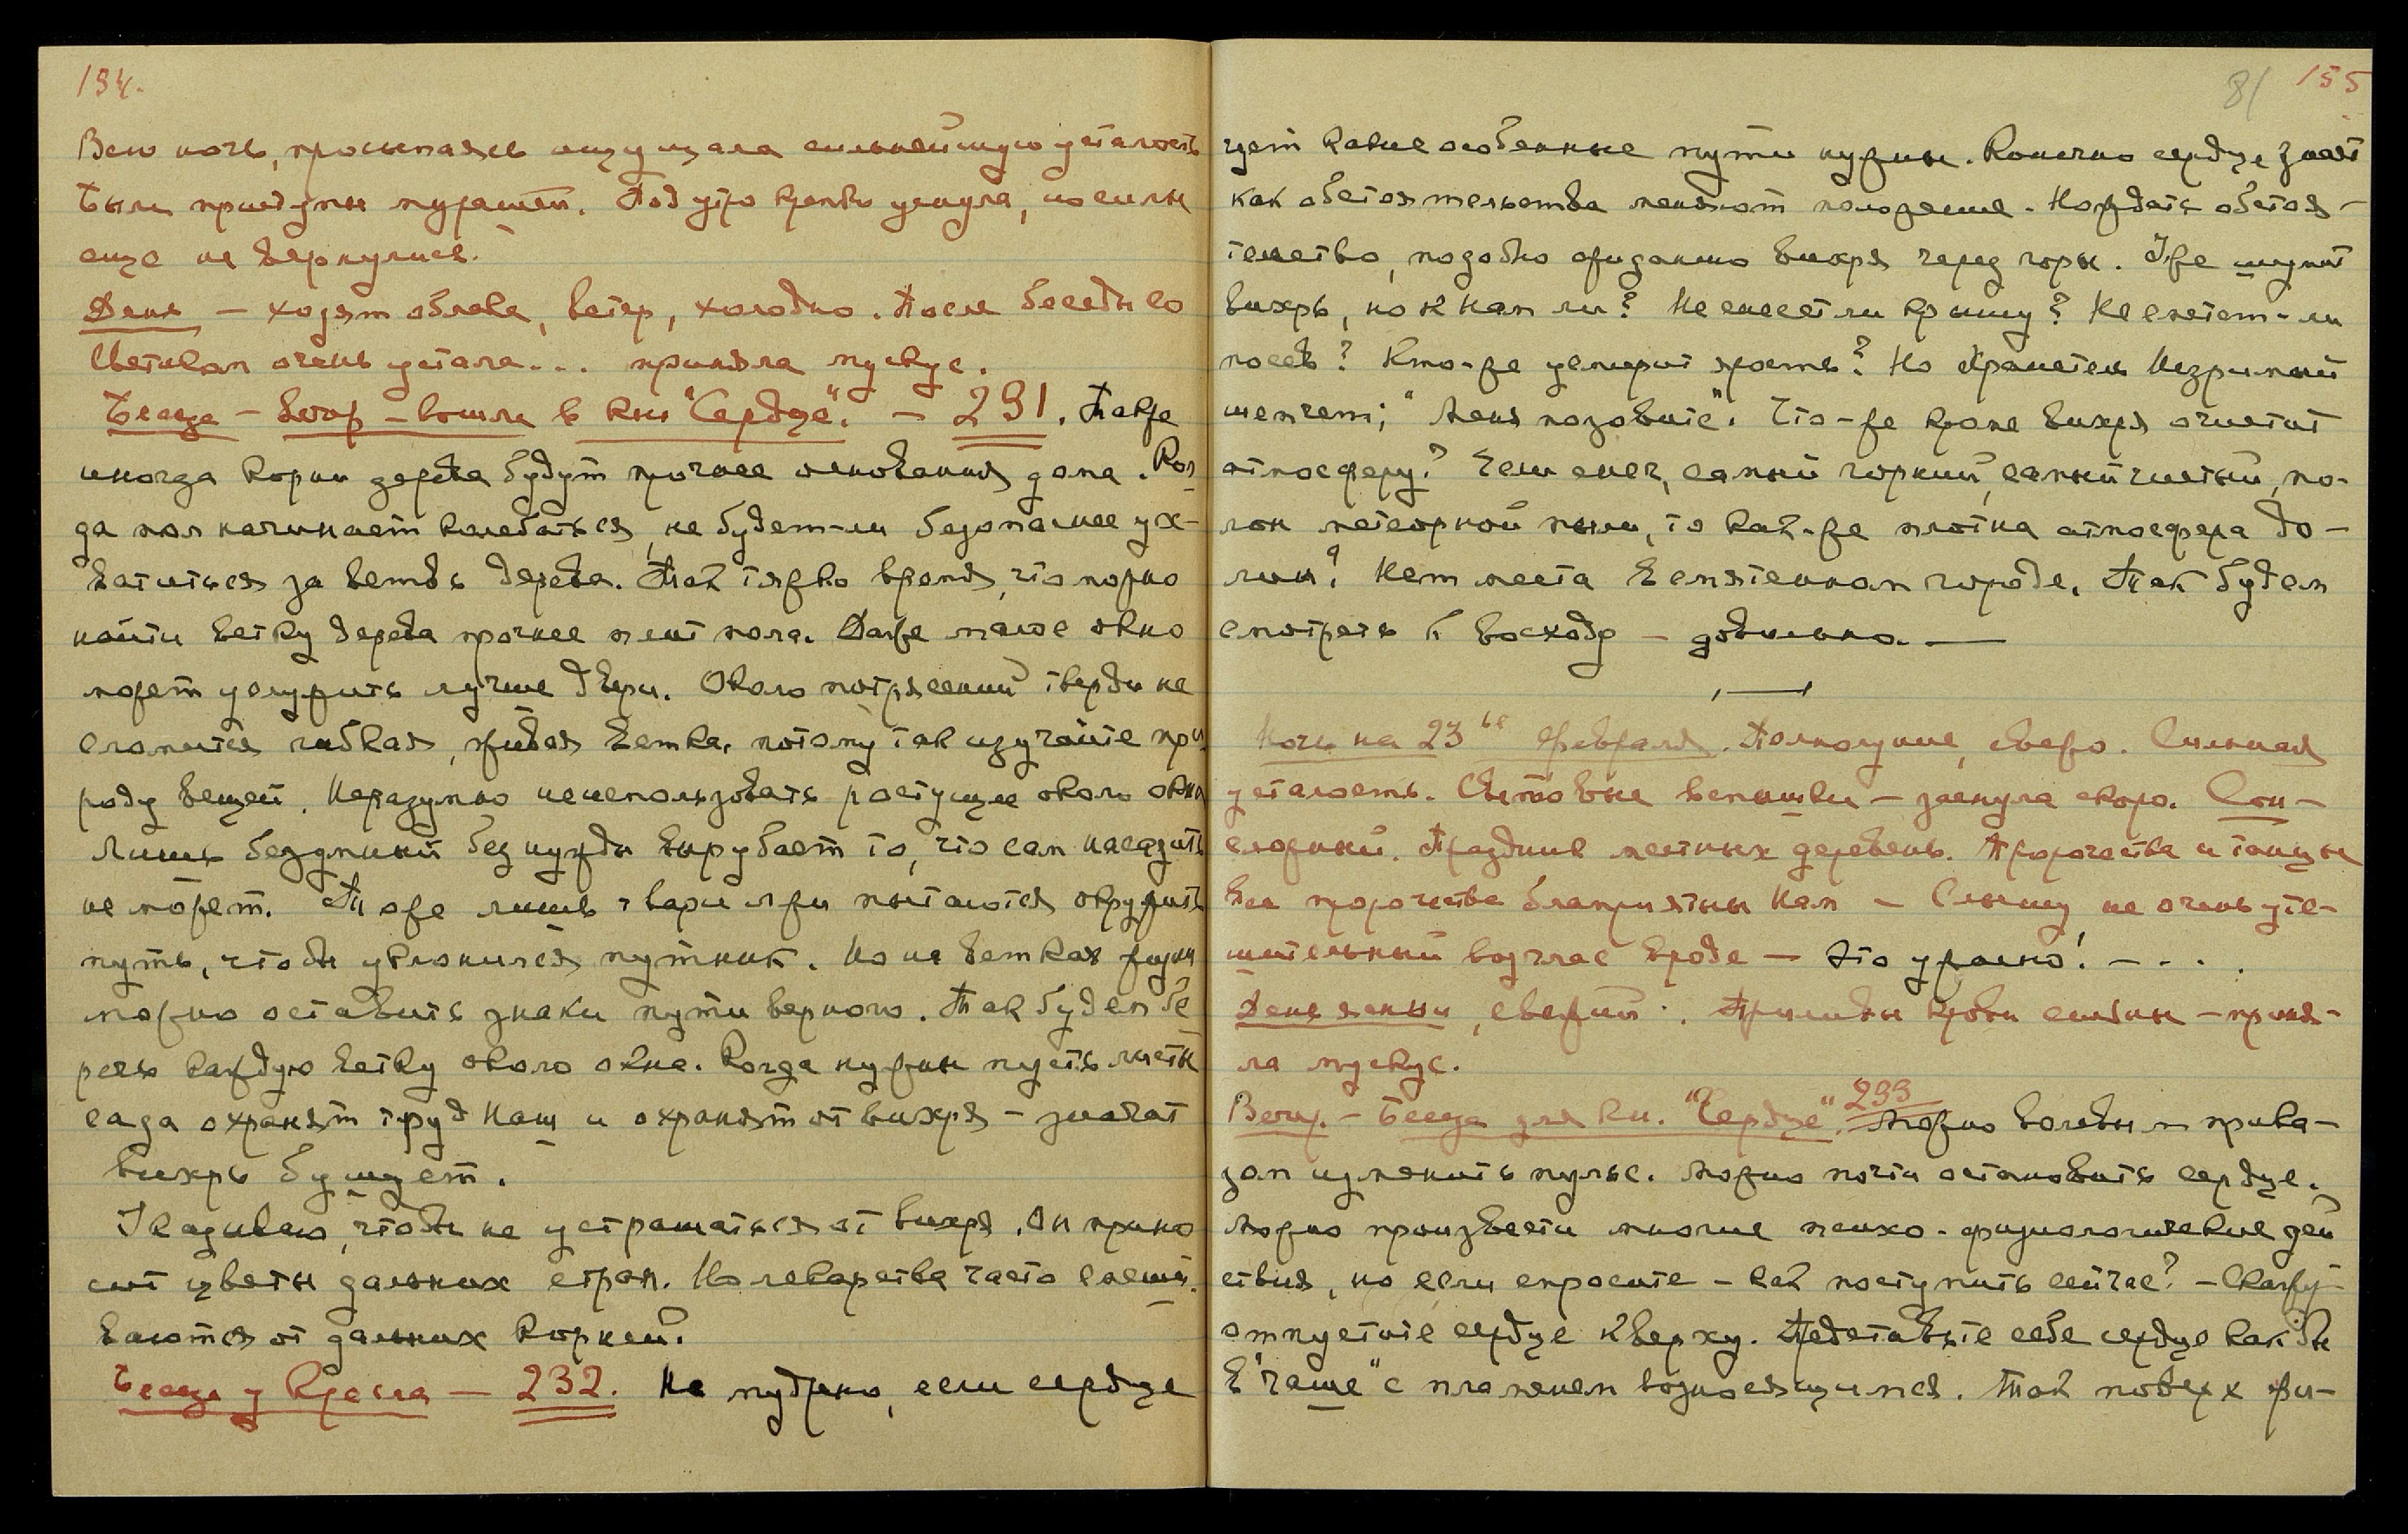 154.
Всю ночь, просыпаясь ощущала сильнейшую усталость
Были приступы мурашей. Под утро крепко уснула, но силы
еще не вернулись.
День — ходят облака, ветер, холодно. После беседы со
Светиком очень устала... приняла мускус.
Беседа — Вечер — вошла в кни "Сердце". — 231. Также
иногда корни дерева будут прочнее основания дома. Ког
да пол начинает колебаться, не будет-ли безопаснее ух-
ватиться за ветвь дерева. Так тяжко время, что можно
найти ветку дерева прочнее плит пола. Даже малое окно
может услужить лучше двери. Около потрясений тверди не
сломится гибкая, живая ветка, потому так изучайте при
роду вещей. Неразумно не использовать растущее около окна
Лишь бездумный без нужды вырубает то, что сам насадить
не может. Тоже лишь твари лжи пытаются окружить
путь, чтобы уклонился путник. Но на ветках жизни
можно оставить знаки пути верного. Так будем бе
речь каждую ветку около окна. Когда нужны пусть листы
сада охранят труд Наш и охранят от вихря — значит
вихрь бушует.
Указываю, чтобы не устрашаться от вихря. Он прино
сит цветы дальних стран. Но лекарства часто смеши
ваются от дальних корней.
Беседа у Кресла — 232. Не мудрено, если сердце
81 155
чует какие особенные пути нужны. Конечно сердце знает
как обстоятельства меняют положение. Нождать обстоя-
тельство, подобно ожиданию вихря через горы. Уже шумит
вихрь, но к нам ли? Не снесет ли крышу? Не сметет-ли
посев? Кто-же усмирит ярость? Но Хранитель Незримый
шепчет; "Меня позовите". Что-же кроме вихря очистит
атмосферу? Если снег, самый горний, самый чистый, по-
лон метеорной пыли, то как-же плотна атмосфера до-
лин? Нет места в смятенном городе. Так будем
смотреть к восходу — довольно. —
Ночь на 23ье Февраля. Полнолуние, свежо. Сильная
усталость. Световые вспышки — заснула скоро. Сон —
сложный. Праздник местных деревень. Пророчества и танцы
Все пророчества благоприятны Нам — Слышу не очень уте-
шительный возглас вроде — это ужасно! — . . .
День ясный, свежий. Приливы крови сильны — приня-
ла мускус.
Вечер. — Беседа для кн. "Сердце" 233 Можно волевым прика-
зом изменить пульс. Можно почти остановить сердце.
Можно произвести многие психо-физиологические дей
ствия, но если спросите — как поступить сейчас? — Скажу
отпустите сердце кверху. Представьте себе сердце как бы
в "чаше" с пламенем возносящимся. Так поверх фи-